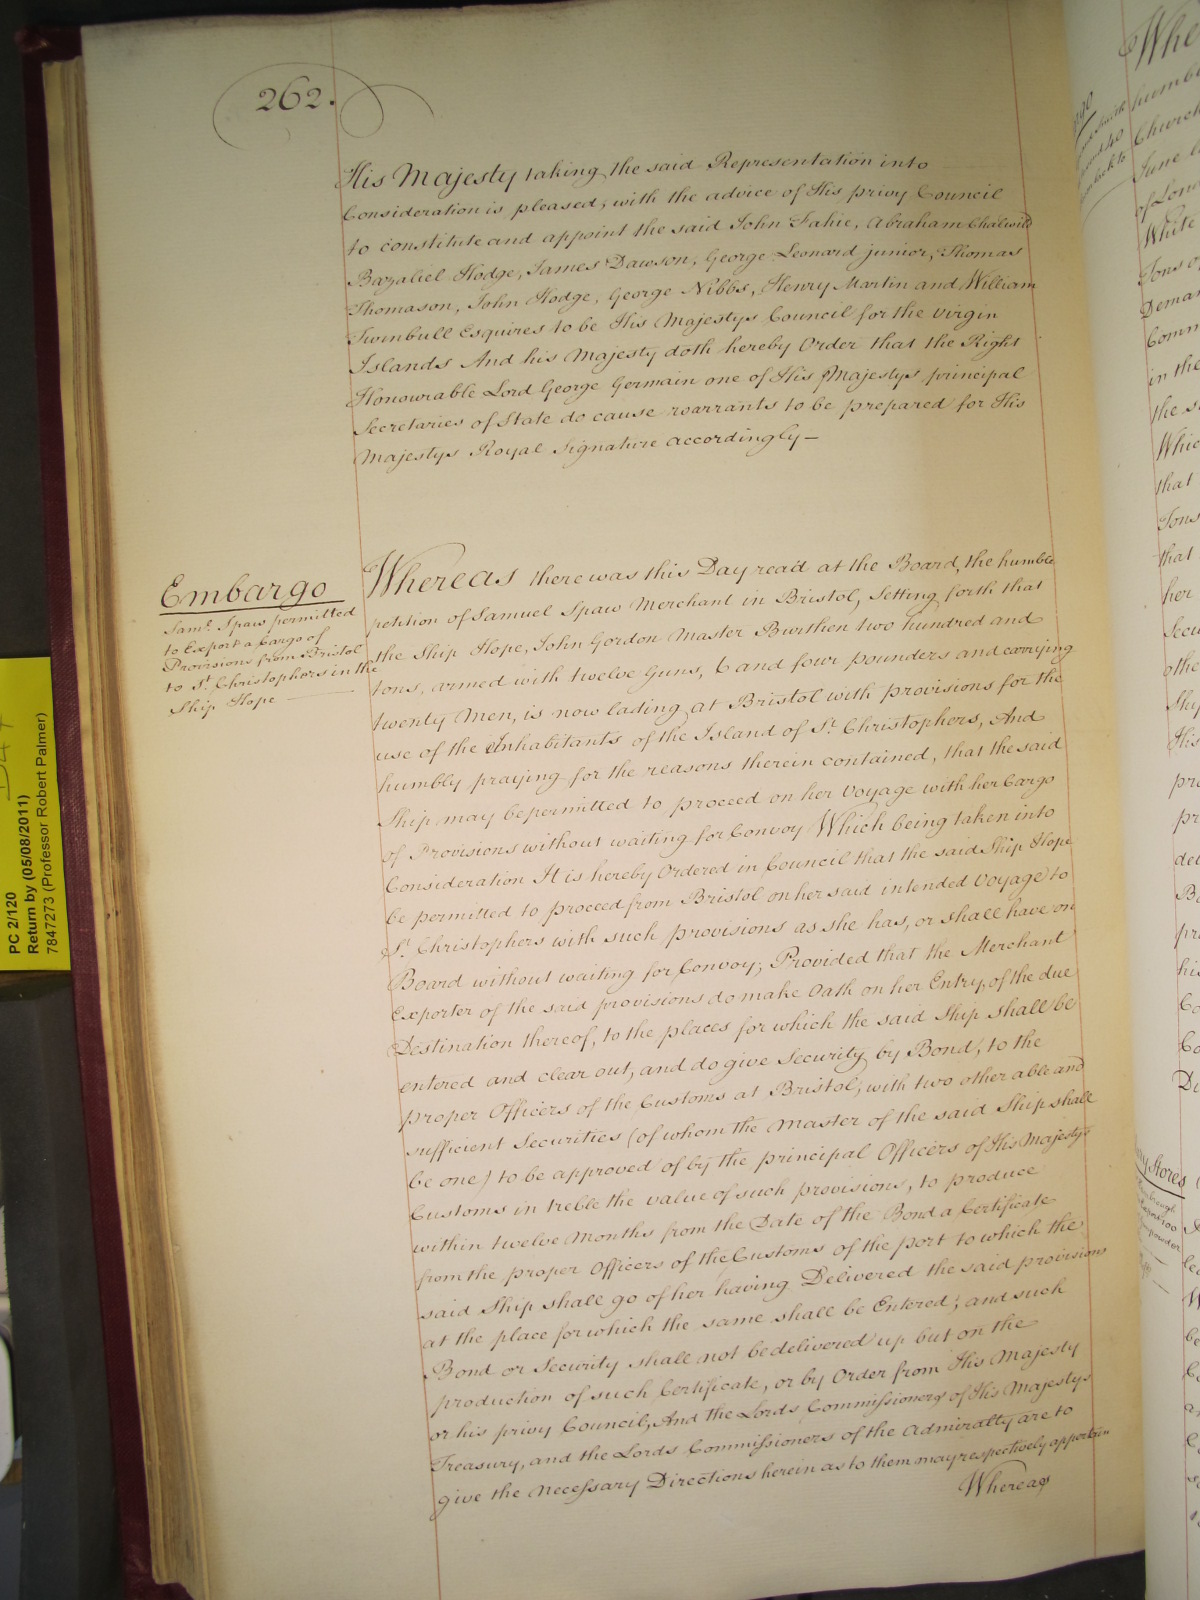 262.
His Majesty taking the said Representation into
Consideration is pleased, with the advice of His privy Council
to constitute and appoint the said John Fahie, Abraham Chalwill
Bazaliel Hodge, James Dawson, George Leonard junior, Thomas
Thomason, John Hodge, George Nibbs, Henry Martin and William
Turnbull Esquires to be His Majestys Council for the Virgin
Islands And his Majesty doth hereby Order that the Right
Honourable Lord George Germain one of His Majestys principal
Secretaries of State do cause warrants to be prepared for His
Majestys Royal Signature accordingly—
Embargo
Saml. Spaw permitted
to Export a Cargo of
Provisions from Bristol
to St. Christophers in the
Ship Hope
Whereas there was this Day read at the Board, the humble
petition of Samuel Spaw Merchant in Bristol, Setting forth that
the Ship Hope, John Gordon Master Burthen two hundred and
tons, armed with twelve Guns, 6 and four pounders and carrying
twenty Men, is now lading at Bristol with provisions for the
use of the Inhabitants of the Island of St. Christophers, And
humbly praying for the reasons therein contained, that the said
Ship may be permitted to proceed on her Voyage with her Cargo
of Provisions without waiting for Convoy Which being taken into
Consideration It is hereby Ordered in Council that the said Ship Hope
be permitted to proceed from Bristol on her said intended Voyage to
St. Christophers with such provisions as she has, or shall have on
Board without waiting for Convoy; Provided that the Merchant
Exporter of the said provisions do make Oath on her Entry, of the due
Destination thereof, to the places for which the said Ship shall be
entered and clear out, and do give Security by Bond, to the
proper Officers of the Customs at Bristol, with two other able and
sufficient Securities (of whom the Master of the said Ship shall
be one) to be approved of by the principal Officers of His Majestys
Customs in treble the value of such provisions, to produce
within twelve Months from the Date of the Bond a Certificate
from the proper Officers of the Customs of the port to which the
said Ship shall go of her having Delivered the said provisions
at the place for which the same shall be Entered; and such
Bond or Security shall not be delivered up but on the
production of such Certificate, or by Order from His Majesty
or his privy Council, And the Lords Commissioners of His Majestys
Treasury, and the Lords Commissioners of the Admiralty are to
give the necessary Directions herein as to them may respectively appertain
Whereas
PC 2/120
Return by (05/08/2011)
7847273 (Professor Robert Palmer)